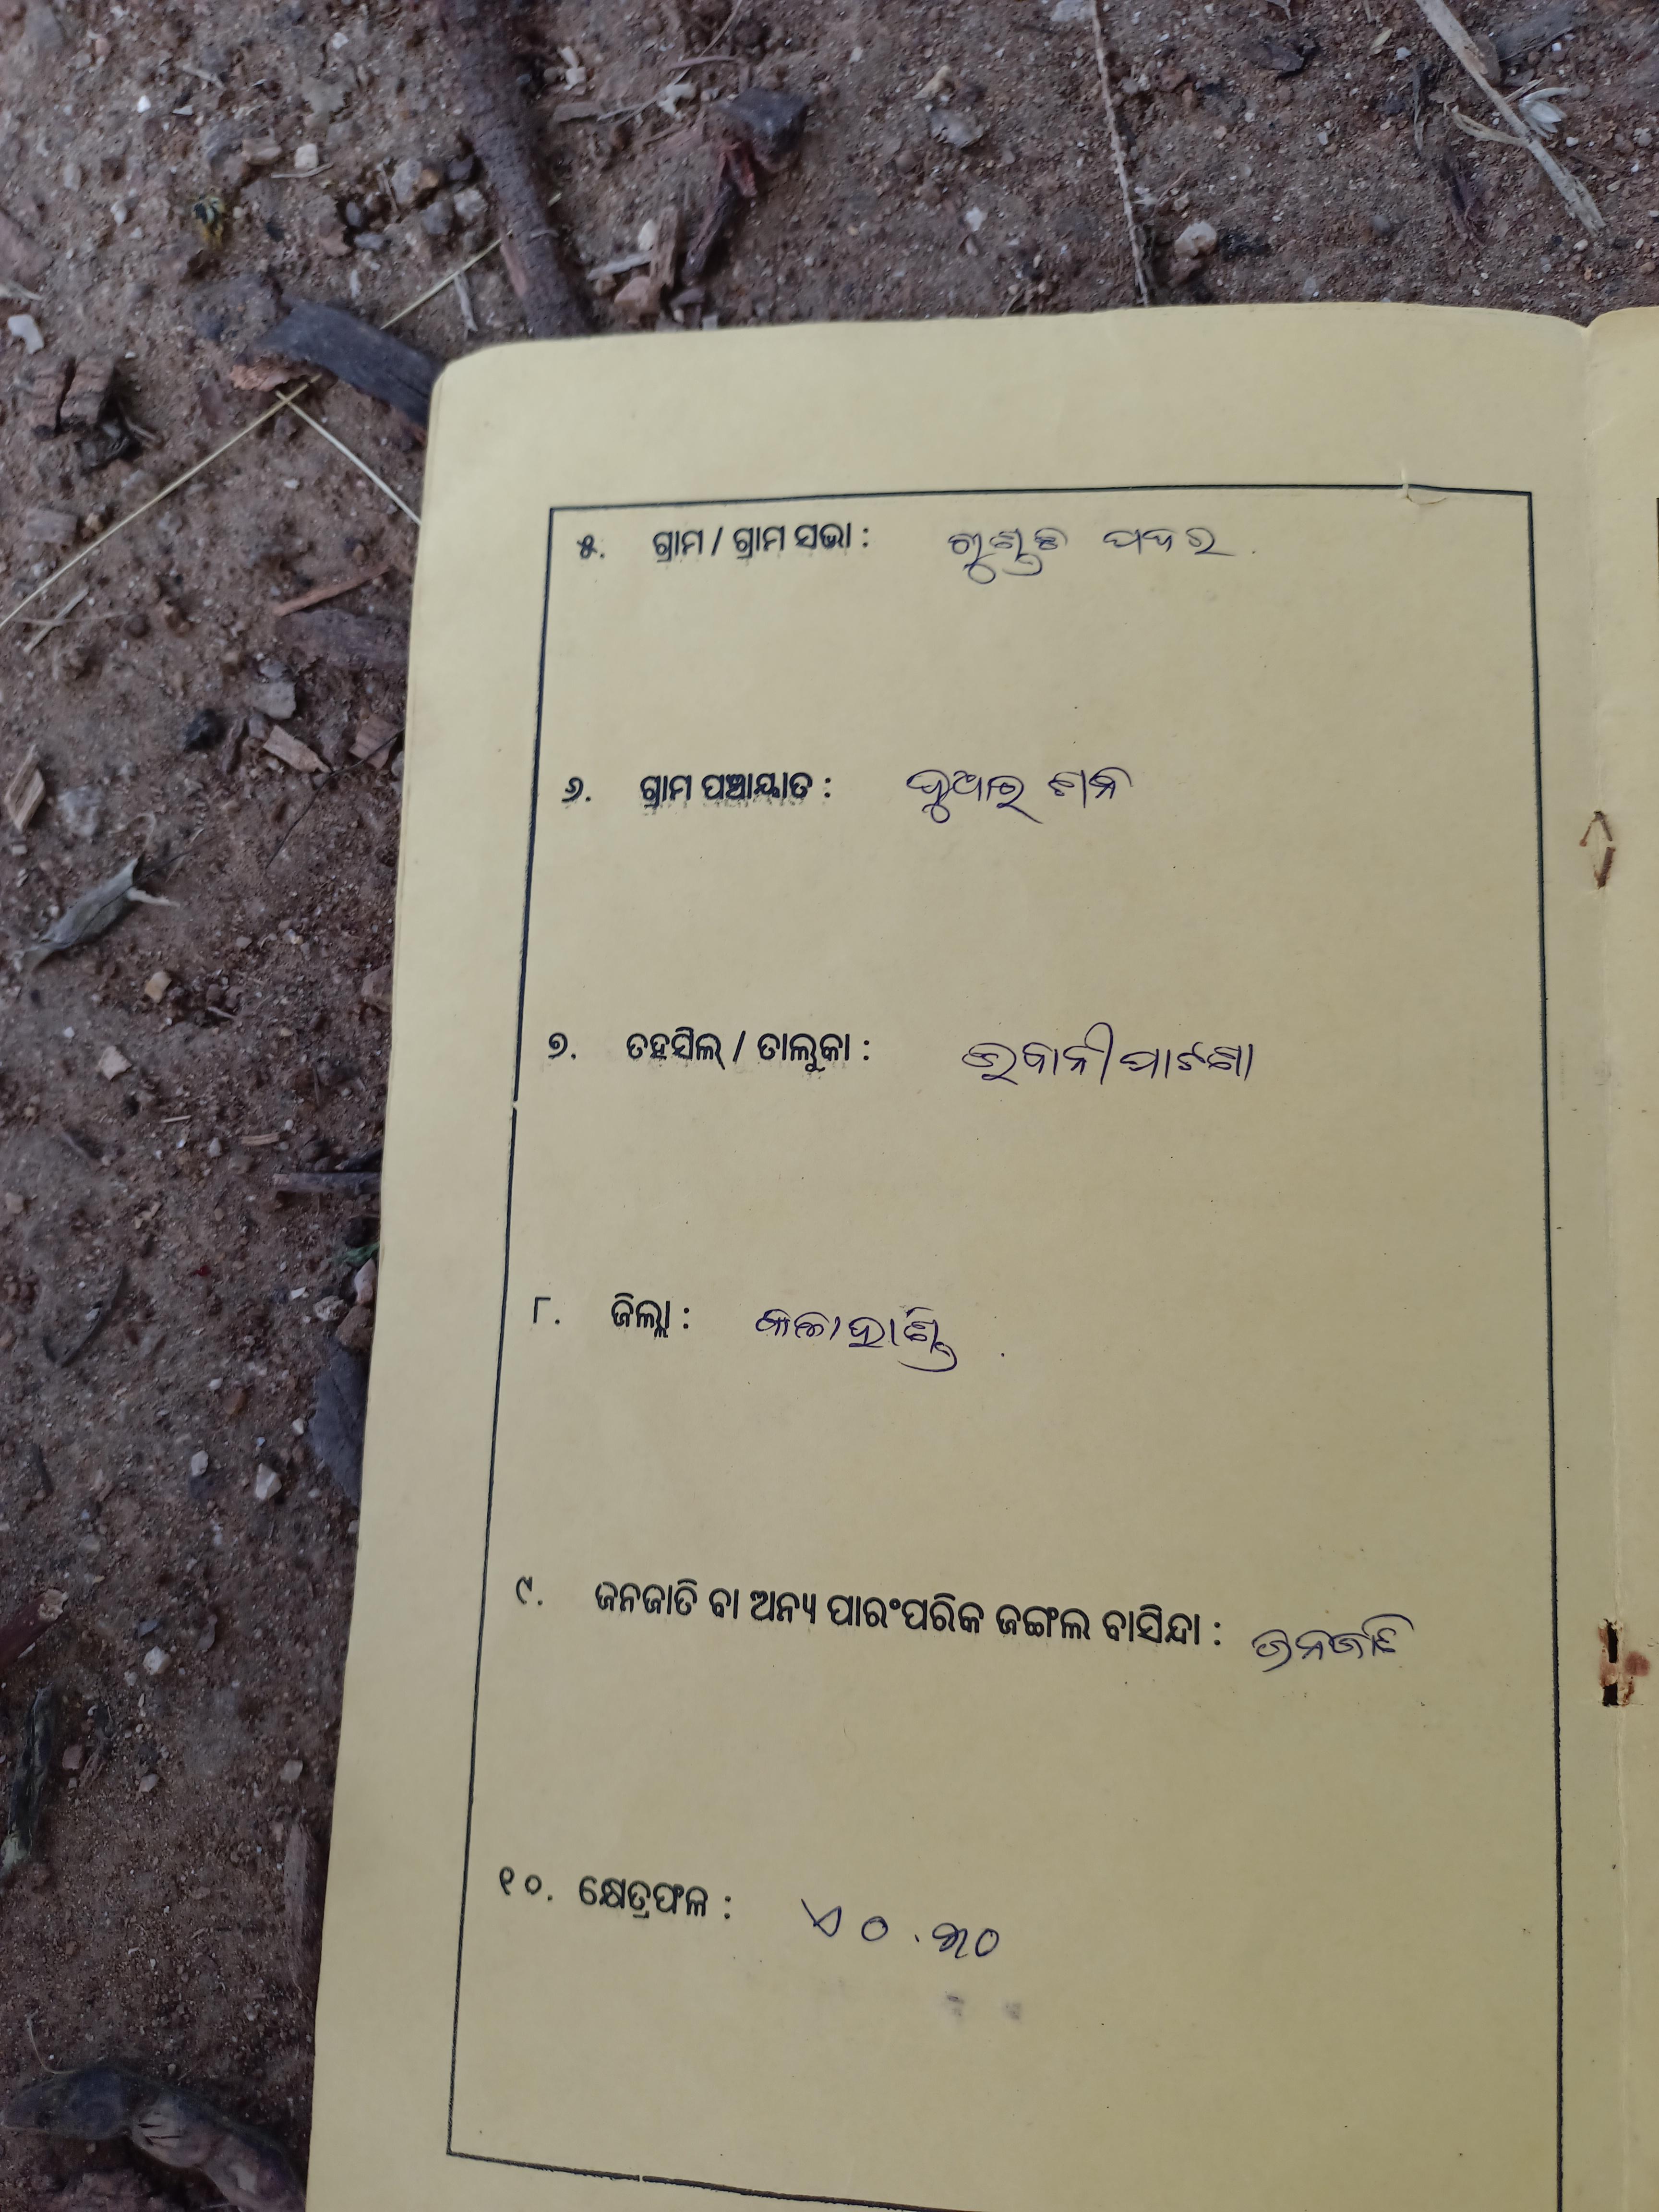 ୫. ଗ୍ରାମ / ଗ୍ରାମ ସଭା : ପଦର
୬. ଗ୍ରାମ ପଞ୍ଚାୟାତ : ଦୁଆର
୭. ତହସିଲ୍ / ତାଲୁକା : ଭବାନୀପାଟଣା
୮. ଜିଲ୍ଲା : କଳାହାଣ୍ଡି
୯. ଜନଜାତି ବା ଅନ୍ୟ ପାରଂପରିକ ଜଙ୍ଗଲ ବାସିନ୍ଦା : ଜନଜାତି
୧୦. କ୍ଷେତ୍ରଫଳ : ଏ ୦.୩୦